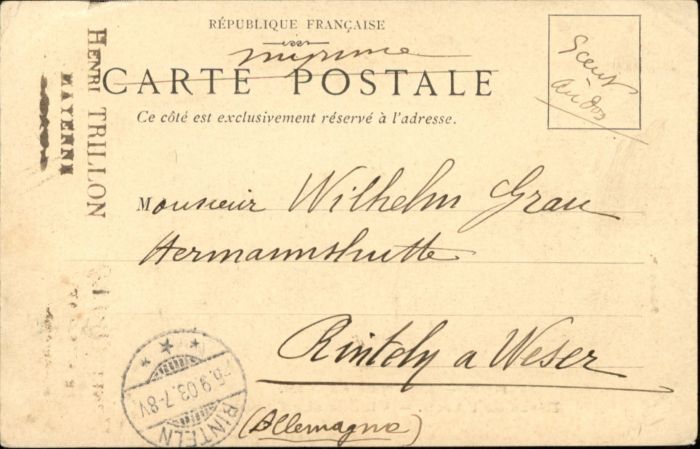 RÉPUBLIQUE FRANÇAISE
CARTE POSTALE
Ce côté est exclusivement réservé à l'adresse.
HENRI TRILLON
MAYENNE
Monsieur Wilhelm Grau
Hermannshutte
Rinteln a Weser
(Allemagne)
6.9.03.7-8V.
RINTELN